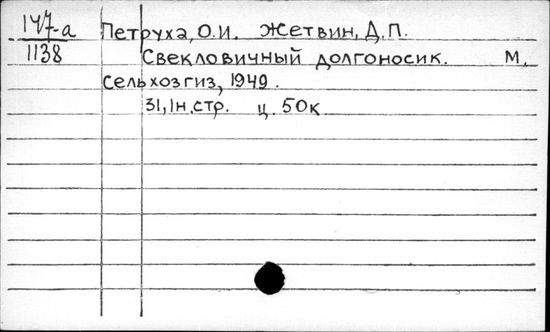 147-а Петруха, О.И. Жетвин, Д.П.
1138 Свекловичный долгоносик. М.
Сельхозгиз, 1949.
31, 1н.стр. ц. 50к